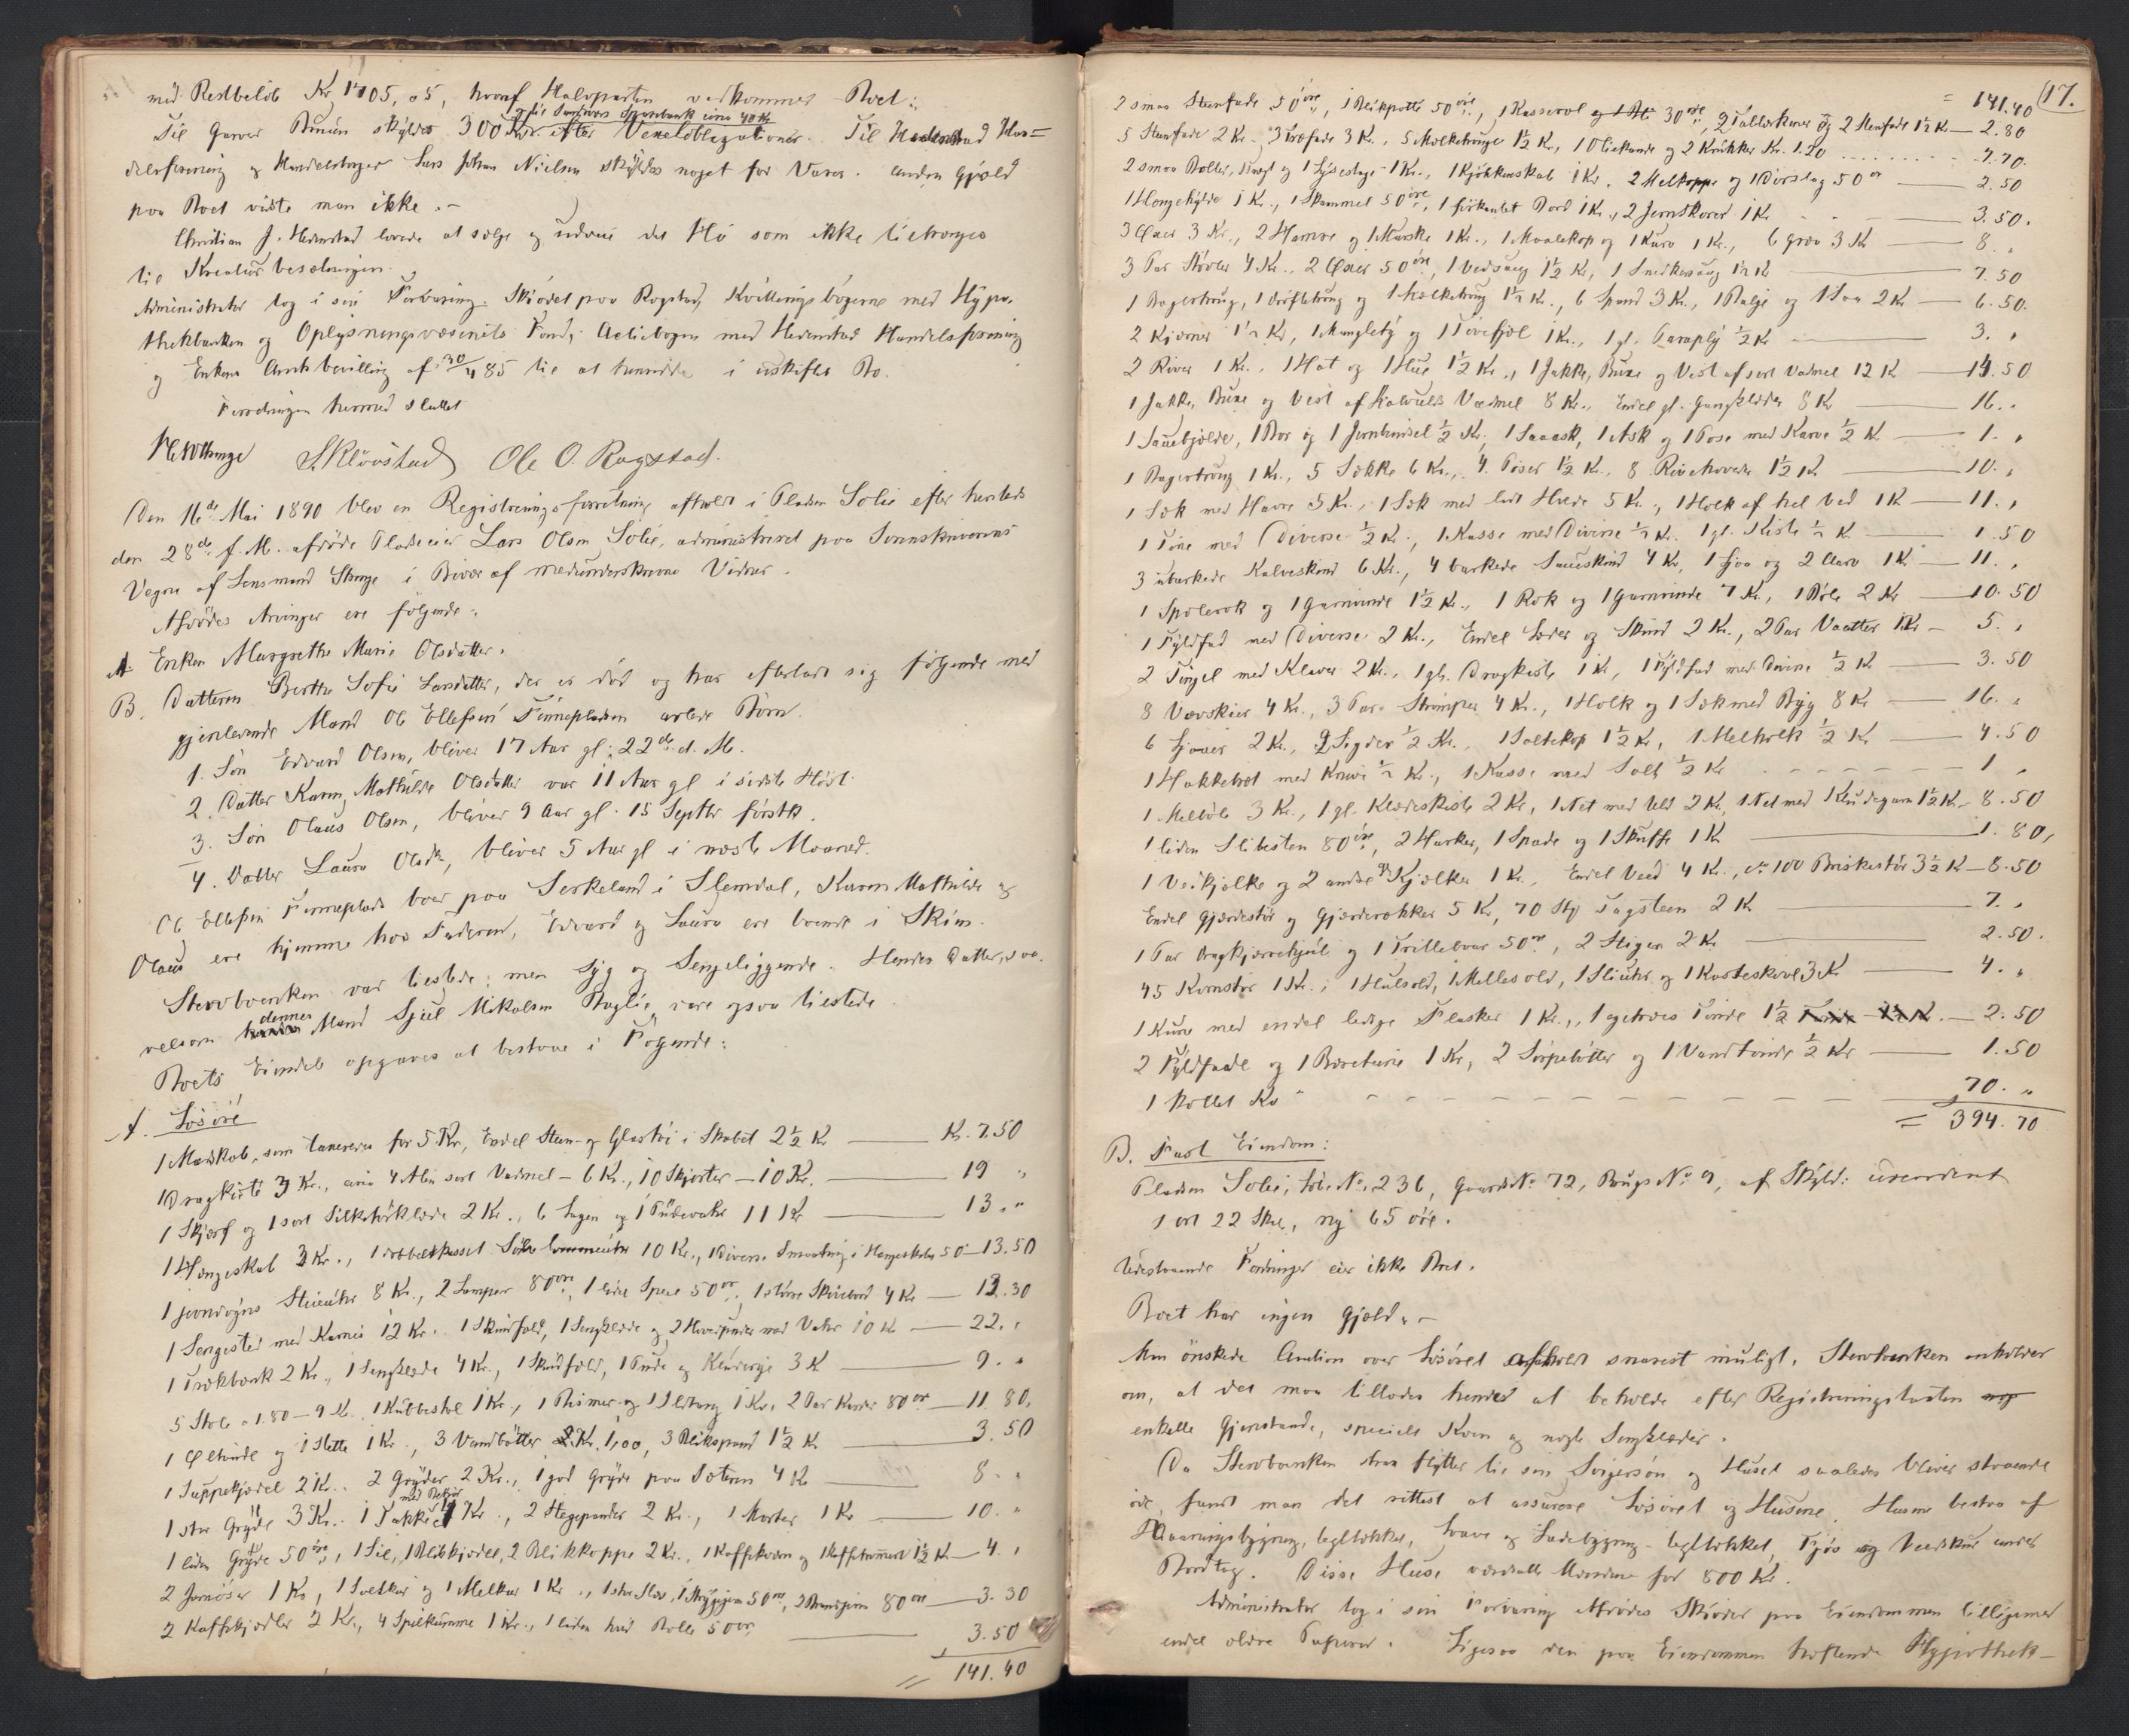 med Restbeløb Kr. 1705,05, hvoraf Halvparten vedkommer Boet.
og til Sandsvær Sparebank circa 40 Kr
Til Garver Bruun skyldes 300 Kr efter Vexelobligationer. Til Hedenstad Han=
delsforening og Handelsborger Lars Johan Nielsen skyldes noget for Varer. Anden Gjæld
paa Boet vidste man ikke.-
Christian J. Hedenstad lovede at sælge og udveie det Hø som ikke tiltrænges
til Kreaturbesætningen.
Administrator tog i sin Forvaring Skjødet paa Rogstad, Kvitteringsbøgerne med Hypo-
thekbanken og Oplysningsvæsenets Fond, Actiebogen med Hedenstad Handelsforening
og Enkens Amtsbevilling af 30/4 85 til at hensidde i uskiftet Bo.
Forretningen hermed sluttet
S. Kløvstad Ole O. Rogstad.
Den 16de Mai 1890 blev en Registreringsforretning afholdt i Pladsen Solie efter herteds
den 28de f. M. afdøde Pladseier Lars Olsen Solie, administreret paa Sorenskriverens
Vegne af Lensmand Skenge i Bivær af medunderskrevne Vidner.
Afdødes Arvinger ere følgende:
A. Enken Margrethe Marie Olsdatter.
B. Datteren Berthe Sofie Larsdatter, der er død og har efterladt sig følgende med
gjenlevende Mand Ole Ellefsen Finnepladsen avlede Børn.
1. Søn Edvard Olsen, bliver 17 Aar gl. 22de d. M.
2. Datter Karen Mathilde Olsdatter var 11 Aar gl i sidste Høst
3. Søn Olaus Olsen, bliver 9 Aar gl. 15 Septbr førstk.
4. Datter Laura Olsdtr, bliver 5 Aar gl i næste Maaned.
Ole Ellefsen Finneplads boer paa Serkeland i Slemdal, Karen Mathilde og
Olaus ere hjemme hos Faderen, Edvard og Laura ere boende i Skien.
Stervboenken var tilstede, men syg og Sengeliggende. Hendes Datter, saa-
dennes
velsom Mand Sjul Mikalsen Baglie, vare ogsaa tilstede
Boets Eiendele opgaves at bestaae i Følgende:
A. Løsøre
1 Madskab, som taxeredes for 5 Kr, Endel Steen- og Glastøi i Skabet 2½ Kr — Kr. 7.50
1 Dragkiste 3 Kr., circa 4 Alen sort Vadmel – 6 Kr., 10 Skjorter – 10 Kr. — 19 "
1 Skjærf og 1 sort Silketørklæde 2 Kr., 6 Lagen og 1 Pudevahr 11 Kr — 13. "
1 Hængeskab 3 Kr., 1 dobbeltkasset Sølv Lommeuhr 10 Kr., Diverse Smaating i Hængeskabet 50 – 13.50
1 jevndøgns Stueuhr 8 Kr., 2 Lamper 80 øre, 1 lidet Speil 50 ør, 1 større Skivebord 4 Kr — 13.30
1 Sengested med Karnis 12 Kr. 1 Skindfeld, 1 Sengklæde og 2 Hovedpuder med Vahr 10 Kr — 22. "
1 Trækbænk 2 Kr., 1 Sengklæde 4 Kr., 1 Skindfeld, 1 Pude og 3 K — 9. "
5 Stole a 1.80 – 9 Kr. 1 Kubbestol 1 Kr., 1 Bismer og 1 Ildtang 1 Kr, 2 Par Karder 80 ør — 11 80.
1 Øltønde og 1 Slette 1 Kr., 3 Vandbøtter Kr. 1,00, 3 Blikspand 1½ K — 3.50
1 Suppekjedel 2 Kr., 2 Gryder 2 Kr., 1 god Gryde paa Sæteren 4 K — 8. "
med Bekjær
1 stor Gryde 3 Kr. 1 Takke 4 Kr., 2 Stegepander 2 Kr., 1 Morter 1 Kr — 10. "
1 liden Gryde 50 øre, 1 Sil, 1 Blikkjedel, 2 Blikkoppe 2 Kr., 1 Kaffekværn og 1 Kaffebrænder 1½ K — 4. "
2 Jernøser 1 Kr, 1 Saltkar og 1 Melkar 1 Kr., 1 stor Slev, 1 Strygejern 50 øre, 2 80 øre — 3.30
2 Kaffekjedler 2 Kr., 4 Spilkumme 1 Kr., 1 liden hvid Bolle 50 ør, — 3.50
= 141.40
17.
= 141.40
2 smaa Steenfade 50 øre, 1 Blikpotte 50 øre, 1 Kasserol 30 øre, 2 Tallerkener og 2 Stenfade 1½ K — 2.80
5 Stenfade 2 Kr. 3 Træfade 3 Kr., 5 Melketruge 1½ Kr, 1 Oliekande og 2 Krukker Kr. 1.20 - - - 7.70.
2 smaa Boller, 1 og 1 Lysestage 1 Kr., 1 Kjøkkenskab 1 Kr. 2 Melkoppe og 1 Dørslag 50 ør — 2.50
1 Hængehylde 1 Kr., 1 Skammel 50 øre, 1 firkantet Bord 1 Kr., 2 Jernskorer 1 K — 3.50.
3 Øxer 3 Kr., 2 Hamre og 1 Murske 1 Kr., 1 Maalekop og 1 Kurv 1 Kr., 6 Græv 3 Kr — 8. "
3 Par Støvler 4 Kr., 2 Øxer 50 øre, 1 Vedsaug 1½ Kr, 1 Snedkersaug 1½ Kr — 7.50
1 Bagertrug, 1 Drøftetrug og 1 Melketrug 1½ Kr., 6 Spand 3 Kr., 1 Balje og 1 Saa 2 Kr — 6.50.
2 Kjerner 1½ Kr, 1 Mangletøi og 1 Tøvefjel 1 Kr., 1 gl. Paraply ½ Kr — 3. "
2 River 1 Kr., 1 Hat og 1 Hue 1½ Kr., 1 Jakke, Buxe og Vest af sort Vadmel 12 K — 14.50
1 Jakke, Buxe og Vest af Halvulds Vadmel 8 Kr., Endel gl. Gangklæder 8 Kr — 16. "
1 Sauebjelde, 1 Bor og 1 Jernhusel ½ Kr., 1 Laaask, 1 Ask og 1 Pose med Karve ½ K — 1. "
1 Bagertrug 1 Kr., 5 Sække 6 Kr., 4 Poser 1½ Kr., 8 Rivehoveder 1½ K — 10. "
1 Sæk med Havre 5 Kr., 1 Sæk med lidt Hvede 5 Kr., 1 Holk af hel Ved 1 K — 11. "
1 Tine med Diverse ½ Kr., 1 Kasse med Diverse ½ Kr. 1 gl. Kiste ½ K — 1.50
3 ubarkede Kalveskind 6 Kr., 4 barkede Saueskind 4 Kr, 1 Ljaa og 2 Aarv 1 Kr — 11. "
1 Spolerok og 1 Garnvinde 1½ Kr., 1 Rok og 1 Garnvinde 7 Kr., 1 Bøle 2 Kr — 10.50
1 Fyldfad med Diverse 2 Kr., Endel Læder og Skind 2 Kr., 2 Par Vaatter 1 Kr — 5. "
2 Tingel med Klaver 2 Kr., 1 gl. Dragkiste 1 Kr, 1 Fyldfad med Divrse ½ K — 3.50
8 Vævskier 4 Kr., 3 Par Strømper 4 Kr., 1 Holk og 1 Sæk med Byg 8 Kr — 16. "
6 Ljaaer 2 Kr., 2 Sigder ½ Kr., 1 Saltekop 1½ Kr., 1 Melholk ½ Kr — 4.50
1 Hakkebræt med Kniv ½ Kr., 1 Kasse med Salt ½ Kr - - - - 1 "
1 Melbøle 3 Kr., 1 gl. Klædeskiste 2 Kr, 1 Net med Uld 2 Kr, 1 Net med Kludegarn 1½ K – 8.50
1 liden Slibesten 80 øre, 2 Harker, 1 Spade og 1 Skuffe 1 K — 1.80,
1 Vedkjælke og 2 andre gl Kjælker 1 Kr., Endel Veed 4 Kr., ca 100 Briskestør 3½ Kr — 8.50
Endel Gjærdestør og Gjærderækker 5 Kr, 70 Stk Tagsteen 2 K — 7. "
1 Par Dragkjærrehjul og 1 Trillebaar 50 øre, 2 Stiger 2 Kr — 2.50.
45 Kornstør 1 Kr., 1 Hulsold, 1 Mellesold, 1 og 1 Kasteskovl 3 Kr — 4. "
1 Kurv med endel ledige Flasker 1 Kr., 1 egetræes Tønde 1½ — 2.50
2 Fyldfade og 1 Bæretine 1 Kr, 2 Sørpebøtter og 1 Vandtønde ½ Kr — 1.50
1 kollet Ko - - - - - - - 70. "
= 394.70
B. Fast Eiendom:
Pladsen Solie, Løb. No. 236, Gaards No. 72, Brugs No. 9, af Skyld: urevideret
1 ort 22 Skil, ny 65 øre.
Udestaaende Fordringer eier ikke Boet.
Boet har ingen Gjæld.-
Man ønskede Auction over Løsøret afholdt snarest muligt. Stervboenken anholder
om, at det maa tillades hende at beholde efter Registreringstaxten
enkelte Gjenstande, specielt Koen og nogle Sengklæder.
Da Stervboenken strax flytter til sin Svigersøn og Huset saaledes bliver staaende
øde, fandt man det rettest at assurere Løsøret og Husene. Husene bestaa af
Vaaningsbygning, tegltækket, Laave og Ladebygning – tegltækket, Fjøs og Vedskur under
Bordtag. Disse Huse værdsatte Mændene for 800 Kr.
Administrator tog i sin Forvaring Afdødes Skjøder paa Eiendommen tilligemed
endel ældre Papirer. Ligesaa den paa Eiendommen heftende Hypothek-